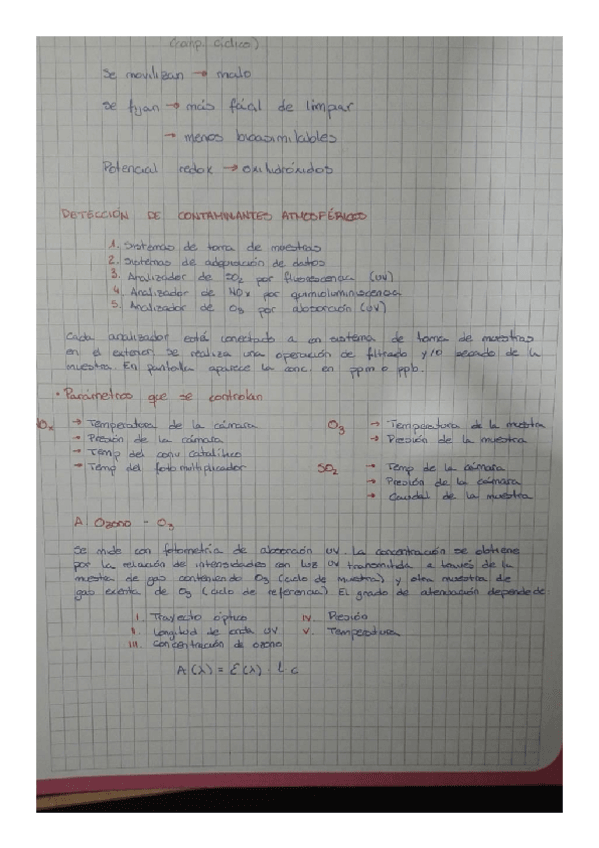 (comp. cíclico)
Se movilizan → malo
Se fijan → más fácil de limpiar
→ menos bioasimilables
Potencial redox → oxihidróxidos
DETECCIÓN DE CONTAMINANTES ATMOSFÉRICO
1. Sistemas de toma de muestras
2. Sistemas de adquisición de datos
3. Analizador de SO2 por fluorescencia (UV)
4. Analizador de NOx por quimioluminiscencia
5. Analizador de O3 por absorción (UV)
Cada analizador está conectado a un sistema de toma de muestras
en el exterior. Se realiza una operación de filtrado y/o secado de la
muestra. En pantalla aparece la conc. en ppm o ppb.
· Parámetros que se controlan
Ox → Temperatura de la cámara
→ Presión de la cámara
→ Temp del conv catalítico
→ Temp del fotomultiplicador
O3 → Temperatura de la muestra
→ Presión de la muestra
SO2 → Temp de la cámara
→ Presión de la cámara
→ Caudal de la muestra
A. Ozono - O3
Se mide con fotometría de absorción UV. La concentración se obtiene
por la relación de intensidades con luz UV transmitida a través de la
muestra de gas conteniendo O3 (ciclo de muestra) y otra muestra de
gas exenta de O3 (ciclo de referencia). El grado de atenuación depende de:
I. Trayecto óptico
II. Longitud de onda UV
III. Concentración de ozono
IV. Presión
V. Temperatura
A(λ) = ε(λ) · L c